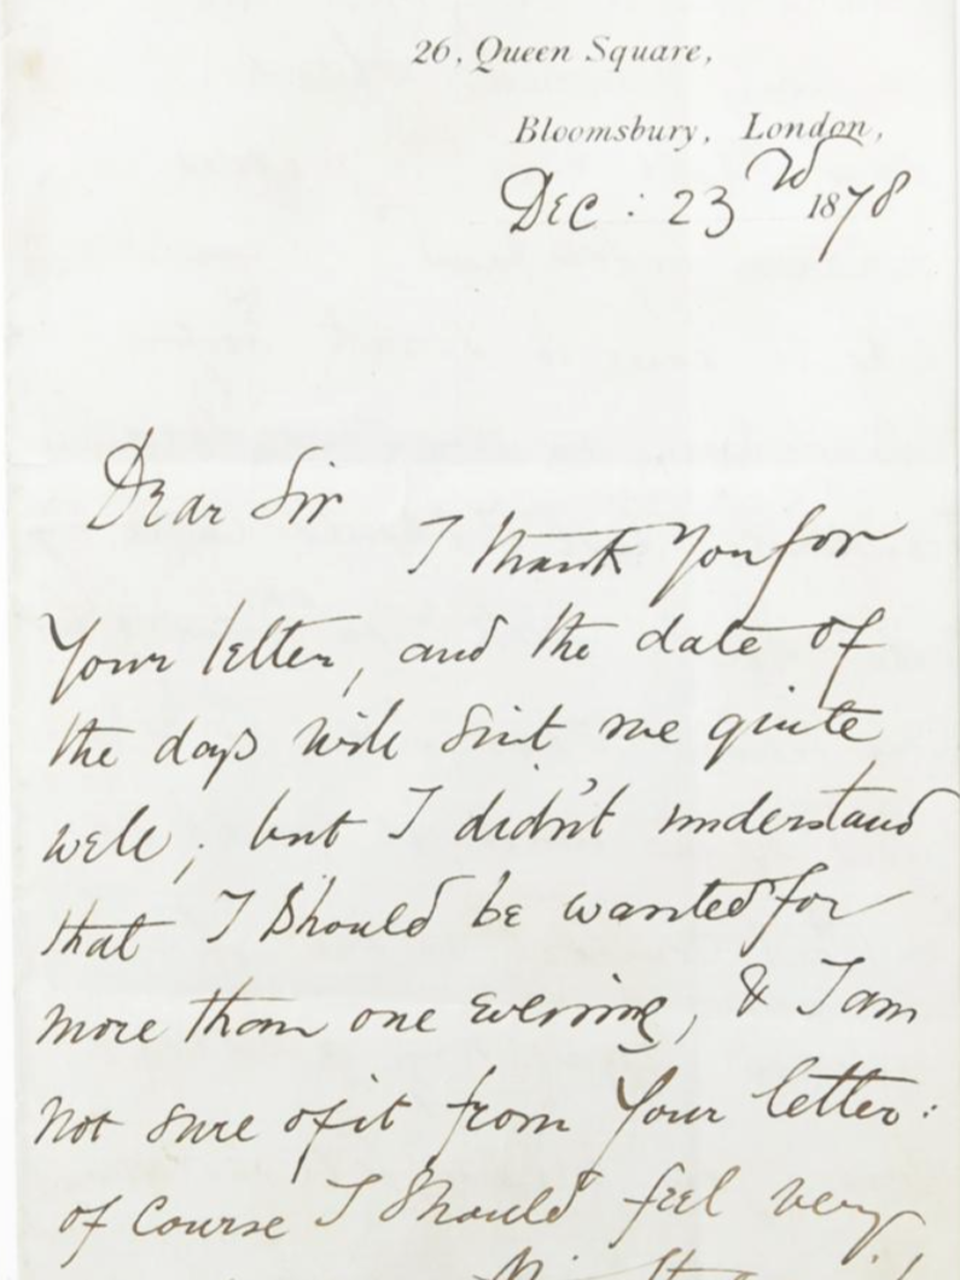 26, Queen Square,
Bloomsbury, London,
Dec: 23rd 1878
Dear Sir
I thank you for
your letter, and the date of
the days will suit me quite
well; but I didn't understand
that I should be wanted for
more than one evening, & I am
not sure of it from your letter:
of course I should feel very